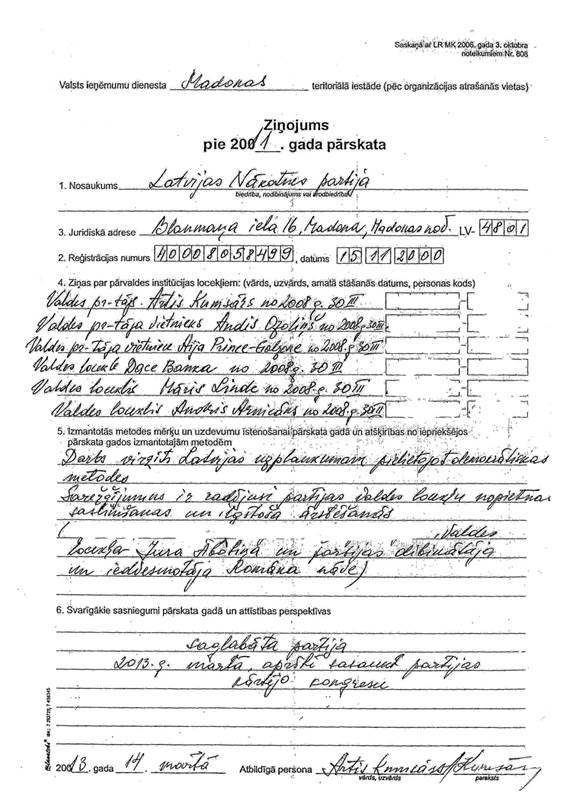 Saskaņā ar LR MK 2006. gada 3. oktobra
noteikumiem Nr. 808
Valsts ieņēmumu dienesta Madonas teritoriālā iestāde (pēc organizācijas atrašanās vietas)
Ziņojums
pie 2001. gada pārskata
1. Nosaukums Latvijas Nākotnes partija
biedrība, nodibinājums vai arodbiedrība
3. Juridiskā adrese Blaumaņa iela 16, Madona, Madonas nov. LV- 4801
2. Reģistrācijas numurs 40008058499, datums 15112000
4. Ziņas par pārvaldes institūcijas locekļiem: (vārds, uzvārds, amatā stāšanās datums, personas kods)
Valdes pr-tājs. Artis Kumsārs no 2008.g. 30 III
Valdes pr-tāja vietnieks Andis Ozoliņš no 2008.g. 30 III
Valdes pr-tāja vietniece Aija Prince-Goļzone no 2008.g. 30 III
Valdes locekle Dace Banka no 2008.g. 30 III
Valdes loceklis Māris Linde no 2008.g. 30 III
Valdes loceklis no 2008.g. 30 III
5. Izmantotās metodes mērķu un uzdevumu īstenošanai pārskata gadā un atšķirības no iepriekšējos
pārskata gados izmantotajām metodēm
Darbs virzīts Latvijas uzplaukumam pielietojot demokrātiskas
metodes
Sarežģījumus ir radījusi partijas valdes locekļu nopietnas
saslimšanas un ilgstoša ārstēšanās
( valdes
locekļa Jura Āboliņa un partijas dibinātāja
un iedvesmotāja Romāna nāve)
6. Svarīgākie sasniegumi pārskata gadā un attīstības perspektīvas
saglabāta partija
2013.g. martā, aprīlī sasaukt partijas
kārtējo kongresu
2013. gada 14. martā Atbildīgā persona Artis Kumsārs
vārds, uzvārds paraksts